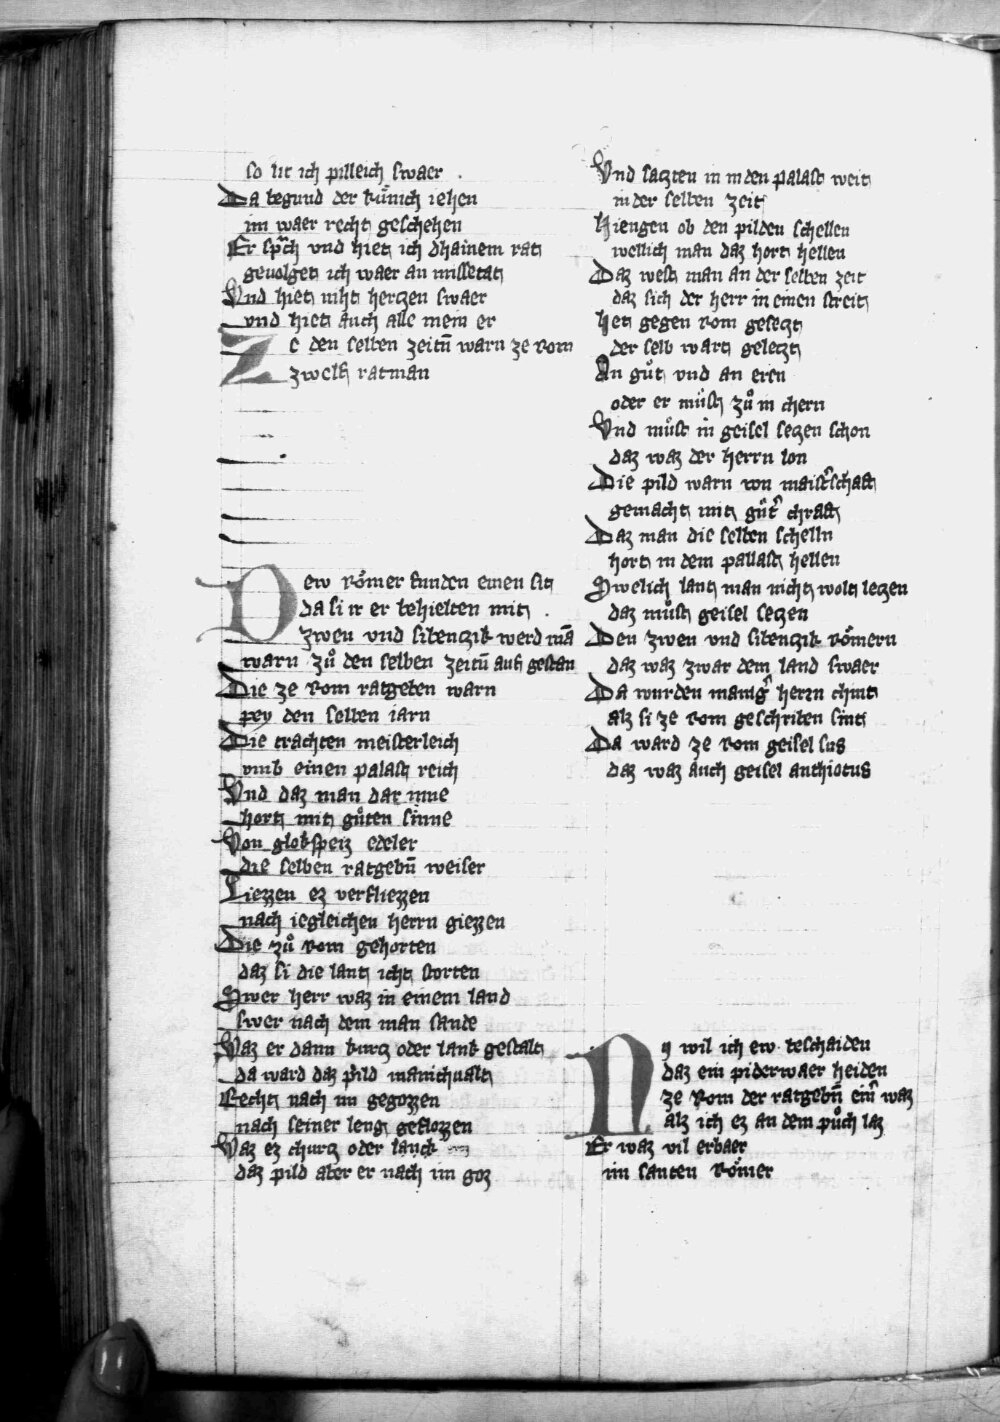 so lit ich pilleich swaer .
Da begund der kuͤnich iehen
im waer recht geschehen
Er sprach vnd hiet ich dhainem rat
geuolget ich waer an missetat
Vnd hiet niht hertzen swaer
vnd hiet auch alle mein er
Ze den selben zeitn̄ warn ze rom
zwelf ratman
Dew Roͤmer kunden einen sit
da si ir er behielten mit .
zwen vnd sibentzik werd mā
warn zuͦ den selben zeitn̄ auf gestan
Die ze Rom ratgeben warn
pey den selben iarn
Die trachten meisterleich
vmb einen palast reich
Vnd daz man dar inne
hort mit guͦten sinne
Von glokspeiz edeler
die selben ratgebn̄ weiser
Liezzen ez verfliezzen
nach iegleichen herrn giezzen
Die zuͦ Rom gehorten
daz si die lant icht storten
Swer herr waz in einem land
swer nach dem man sande
Waz er dann kurtz oder lank gestalt
da ward daz pild manichualt
Recht nach im gegozzen
nach seiner leng geflozzen
Waz ez churtz oder lanck
daz pild aber er nach im goz
Vnd satzten in in den palast weit
in der selben zeit
hiengen ob den pilden schellen
wellich man daz hort hellen
Daz west man an der selben zeit
daz sich der herr in einen streit
het gegen Rom gesetzt
der selb wart geletzt
An guͦt vnd an ern
oder er muͤst zuͦ in chern
Vnd muͦst in geisel setzen schon
daz waz der herrn lon
Die pild warn von maist'schaft
gemacht mit guͦt' chraft
Daz man die selben schelln
hort in dem pallast hellen
Swelich lant man nicht wolt letzen
daz muͦst geisel setzen
Den zwen vnd sibentzik Roͤmern
daz waz zwar dem land swaer
Da wurden manig' herrn chint
alz si ze Rom geschriben sint
Da ward ze Rom geisel sus
daz waz auch geisel anthiotus
Ny wil ich ew beschaiden
daz ein piderwaer heiden
ze Rom der ratgebn̄ ein' waz
alz ich ez an dem puͦch laz
Er waz vil erbaer
im santen Roͤmer